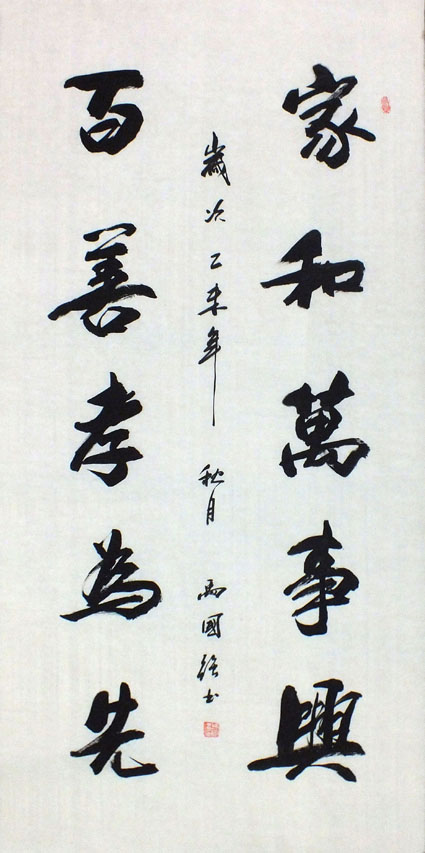 家和萬事興
百善孝為先
歲次乙未年秋月馬國強書